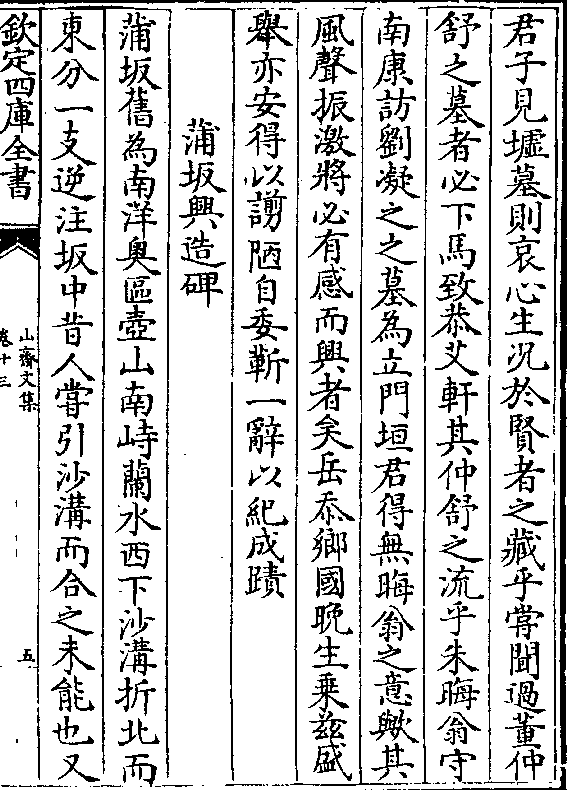 君子見墟墓則哀心生况於賢者之藏乎嘗聞過董仲
舒之墓者必下馬致恭艾軒其仲舒之流乎朱晦翁守
南康訪劉凝之之墓為立門垣君得無晦翁之意歟其
風聲振激將必有感而興者矣岳忝鄉國晚生乗兹盛
舉亦安得以謭陋自委靳一辭以紀成蹟
蒲坂興造碑
蒲坂舊為南洋奥區壺山南峙蘭水西下沙溝折北而
東分一支逆注坂中昔人嘗引沙溝而合之未能也又
欽定四庫全書
山齋文集
卷十三
五